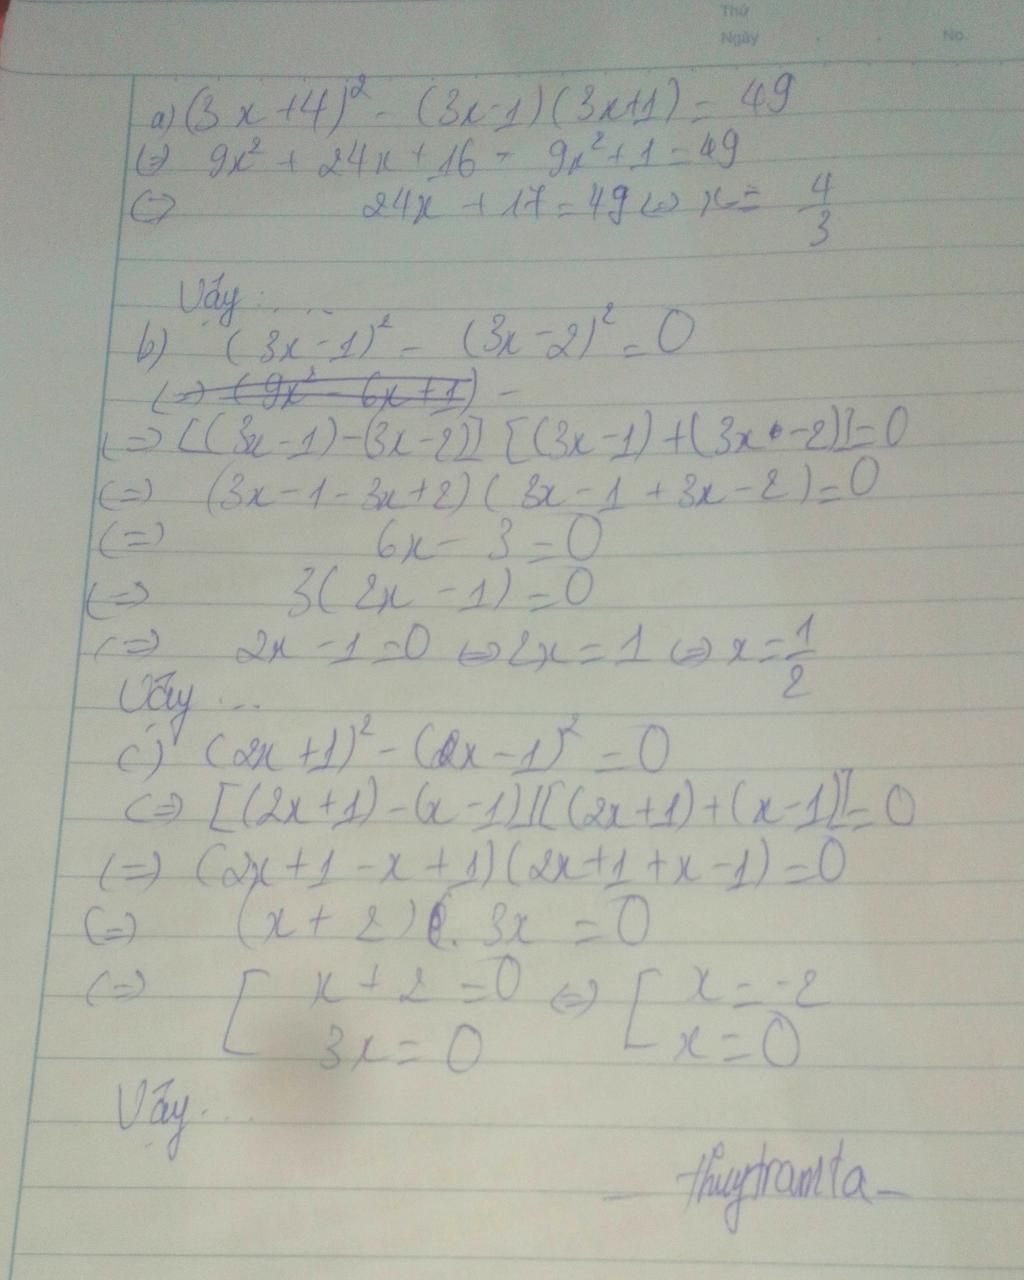 Thứ
Ngày . . No.
a) (3x+4)² - (3x-1)(3x+1) = 49
(=) 9x² + 24x + 16 - 9x² + 1 = 49
(=) 24x + 17 = 49 (=) x = 4/3
Vậy : ....
b) (3x-1)² - (3x-2)² = 0
(=) (9x² - 6x+1) -
(=) [(3x-1)-(3x-2)] [(3x-1)+(3x-2)] = 0
(=) (3x-1-3x+2)(3x-1+3x-2) = 0
(=) 6x - 3 = 0
(=) 3(2x - 1) = 0
(=) 2x - 1 = 0 (=) 2x = 1 (=) x = 1/2
Vậy ...
c) (2x+1)² - (x-1)² = 0
(=) [(2x+1)-(x-1)][(2x+1)+(x-1)] = 0
(=) (2x+1-x+1)(2x+1+x-1) = 0
(=) (x+2) . 3x = 0
(=) [ x+2 = 0 (=) [ x = -2
3x = 0 x = 0
Vậy ....
- thuytramta -